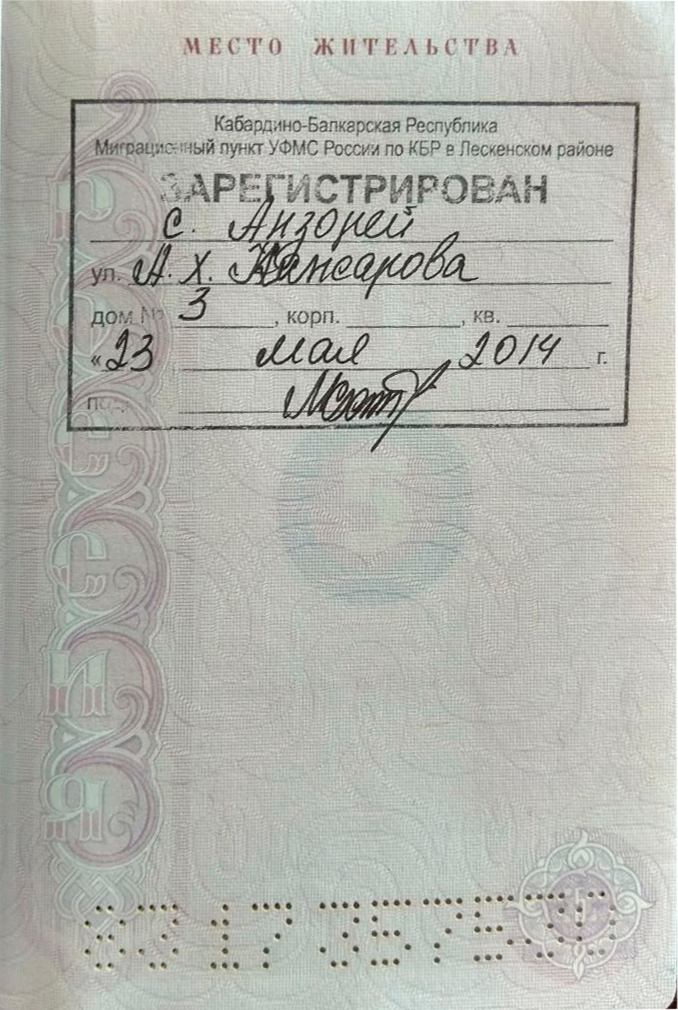 МЕСТО ЖИТЕЛЬСТВА
Кабардино-Балкарская Республика
Миграционный пункт УФМС России по КБР в Лескенском районе
ЗАРЕГИСТРИРОВАН
с. Анзорей
ул. А. Х. Хамжарова
дом № 3, корп. , кв.
«23 мая 2014 г.
РОССИЯ
83 17 357530